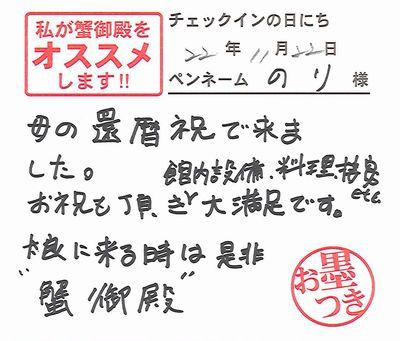 私が蟹御殿を
オススメ
します!!
チェックインの日にち
22年11月22日
ペンネーム のり 様
母の還暦祝で来ま
した。
館内設備、料理、接客
etc.
お祝も頂き大満足です。
良に来る時は是非
"蟹御殿"
お墨つき